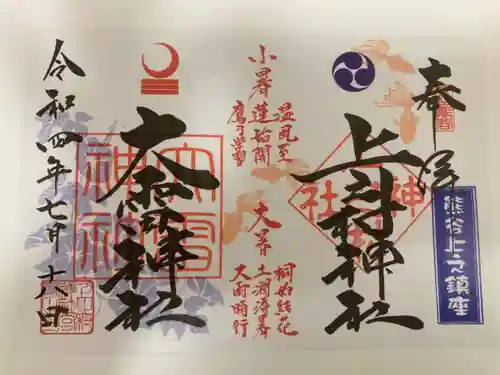 奉拝
熊谷上之鎮座
上之村神社
小暑
温風至
蓮始開
鷹乃学習
大暑
桐始結花
土潤溽暑
大雨時行
大雷神社
大雷神社
令和四年七月十八日